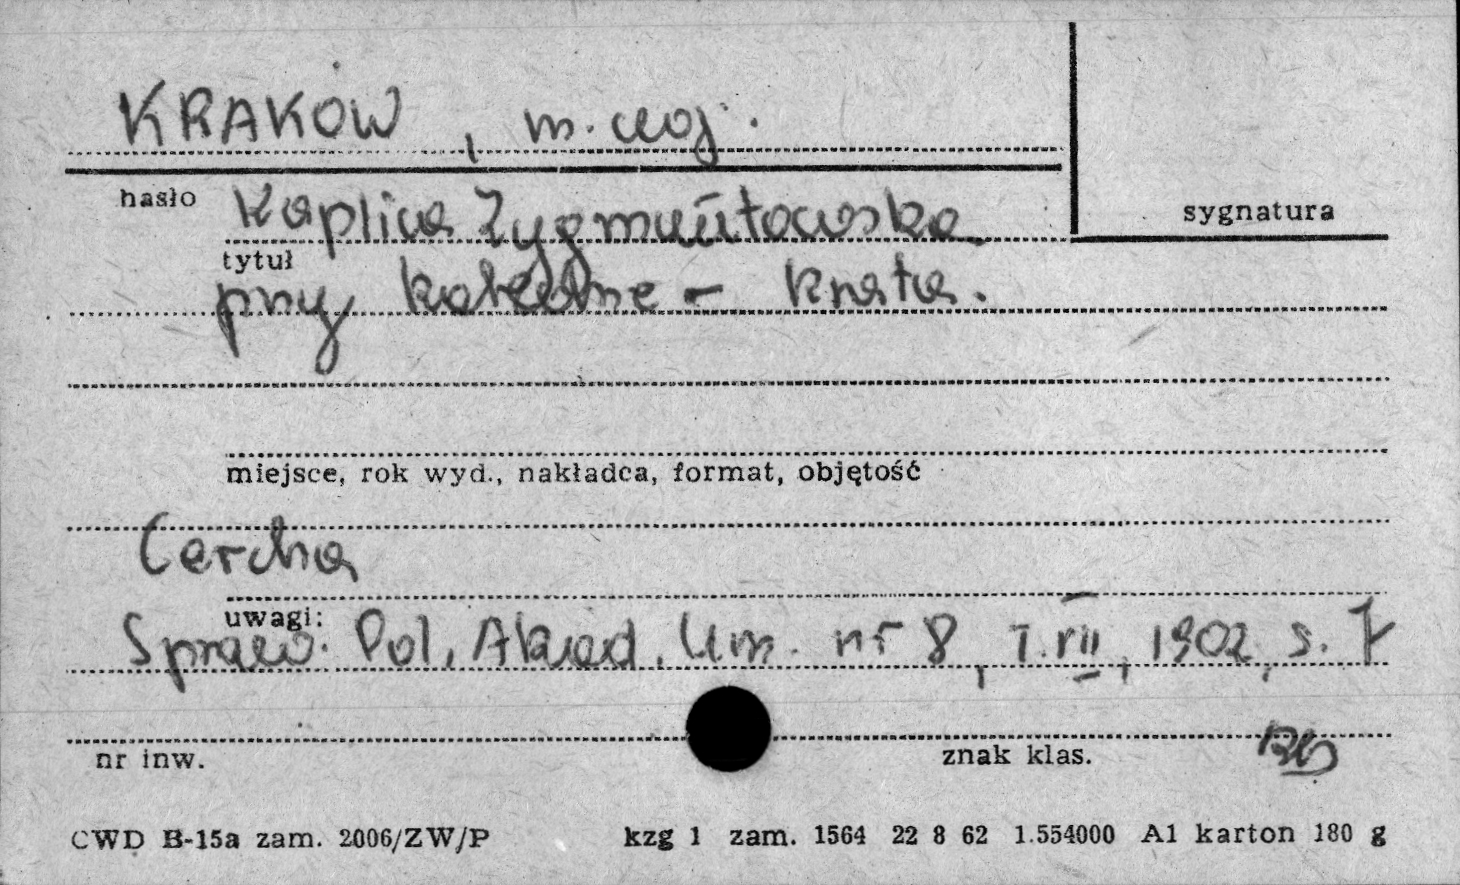 KRAKÓW, m. woj.
hasło
sygnatura
Kaplica Zygmuntowska
tytuł
przy katedrze - krata.
miejsce, rok wyd., nakładca, format, objętość
Cercha
uwagi:
Spraw. Pol. Akad. Um. nr 8, T. VII, 1902, s. 7
nr inw.
znak klas.
CWD B-15a zam. 2006/ZW/P kzg 1 zam. 1564 22 8 62 1.554000 A1 karton 180 g